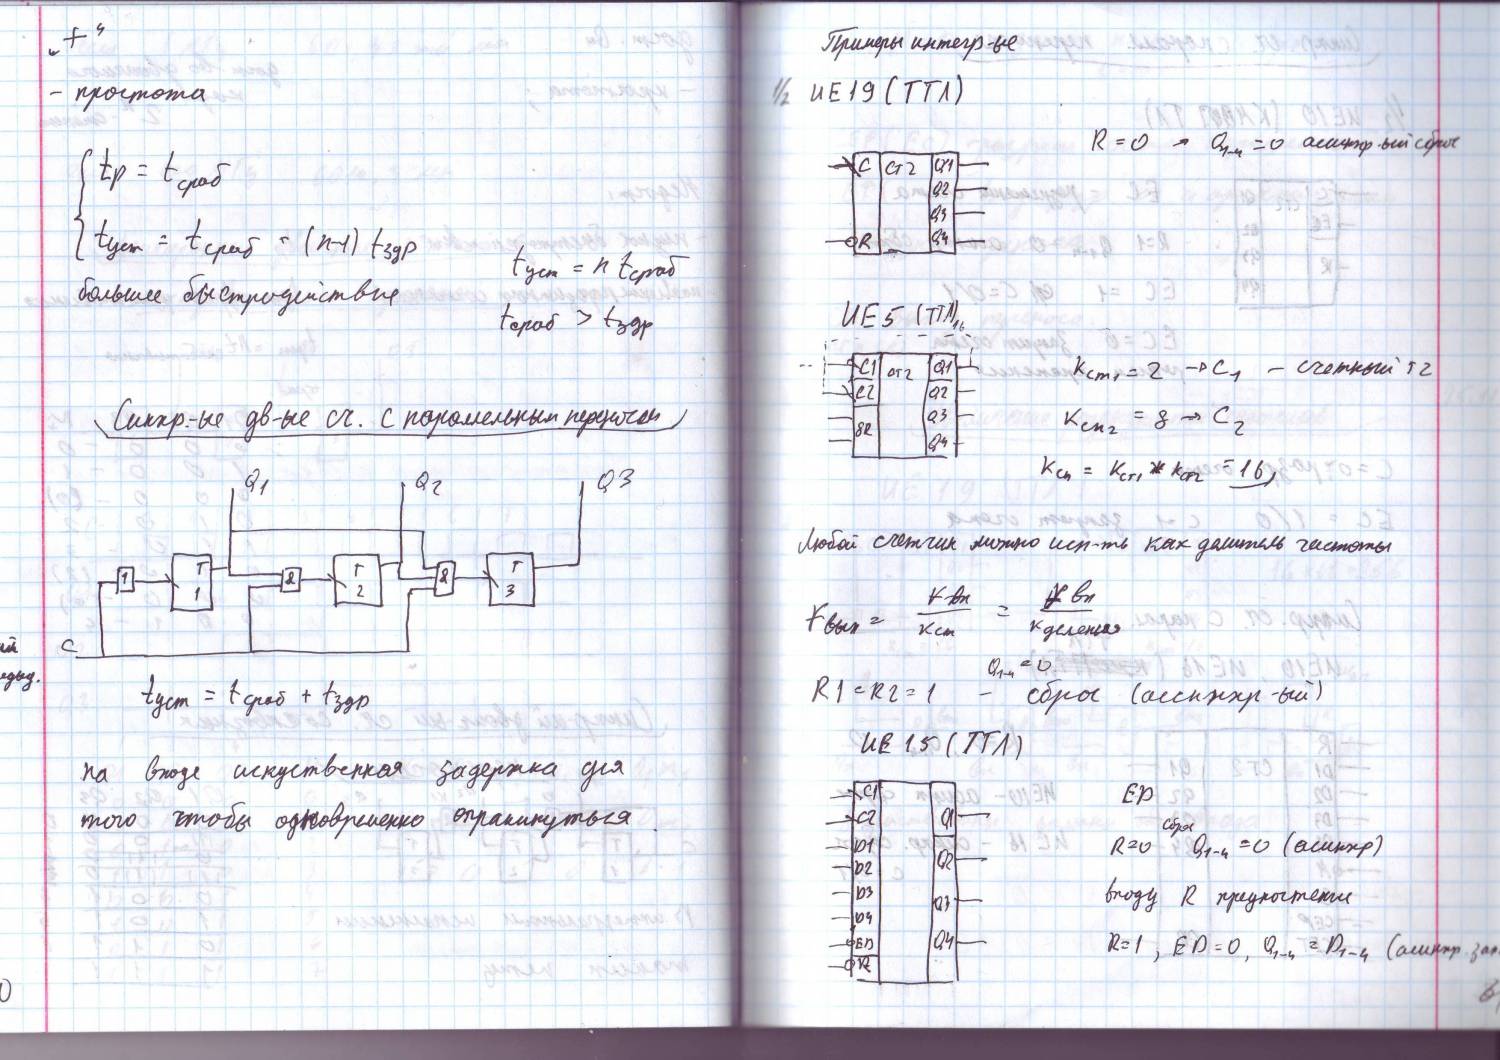 „+“
- простота
tр = tсраб
tуст = tсраб + (n-1) tздр
большее быстродействие
tуст = n tсраб
tсраб > tздр
Синхр.-ые дв-ые сч. с параллельным переносом
Q1 Q2 Q3
1 T 1 2 T 2 2 T 3
C
tуст = tсраб + tздр
на входе искуственная задержка для
того чтобы одновременно опракинуться.
Примеры интегр-ые
1/2 ИЕ19 (ТТЛ)
R = 0 → Q1-4 = 0 асинхр-ый сброс
C СТ2 Q1
Q2
Q3
R Q4
ИЕ5 (ТТЛ)16
C1 СТ2 Q1
C2 Q2
&R Q3
Q4
Kсч1 = 2 → C1 - счетный тг
Kсч2 = 8 → C2
Kсч = Kсч1 * Kсч2 = 16
Любой счетчик можно исп-ть как делитель частоты
Fвых = Fвх / Kсч = Fвх / Kделения
Q1-4 = 0
R1 = R2 = 1 - сброс (ассинхр-ый)
ИЕ15 (ТТЛ)
C1
C2 Q1
D1
D2 Q2
D3 Q3
D4
ED Q4
R
ED
R=0 сброс Q1-4 = 0 (асинхр)
входу R
R=1, ED=0, Q1-4 = D1-4 (асинхр. зап